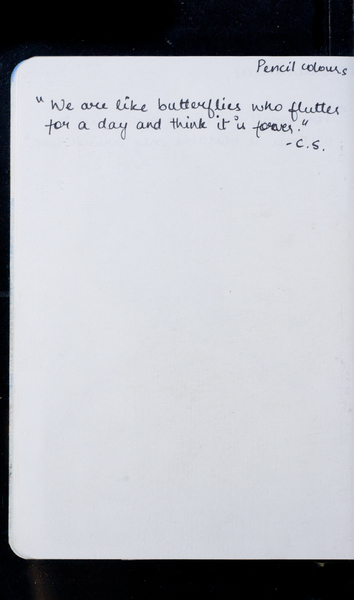 Pencil colours
"We are like butterflies who flutter
for a day and think it is forever."
-C.S.